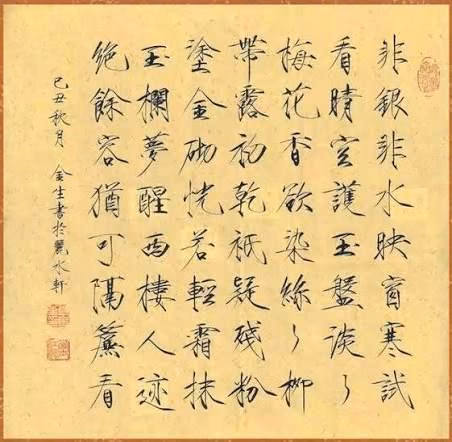 非銀非水映窗寒試
看晴空護玉盤淡〻
梅花香欲染絲〻柳
帶露初乾祇疑殘粉
塗金砌恍若輕霜抹
玉欄夢醒西樓人迹
絶餘容猶可隔簾看
己丑秋月 金生書於麗水軒